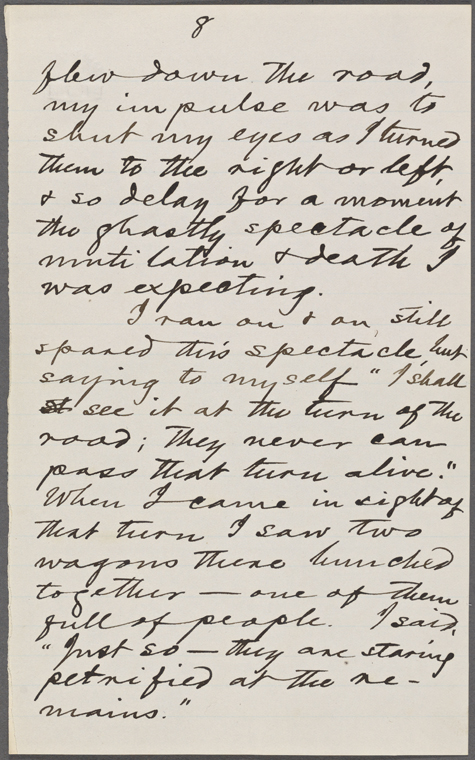 8
flew down the road,
my impulse was to
shut my eyes as I turned
them to the right or left,
& so delay for a moment
the ghastly spectacle of
mutilation & death I
was expecting.
I ran on & on, still
spared this spectacle, but
saying to myself "I shall
st see it at the turn of the
road; they never can
pass that turn alive."
When I came in sight of
that turn I saw two
wagons there bunched
together — one of them
full of people. I said,
"Just so — they are staring
petrified at the re-
mains."